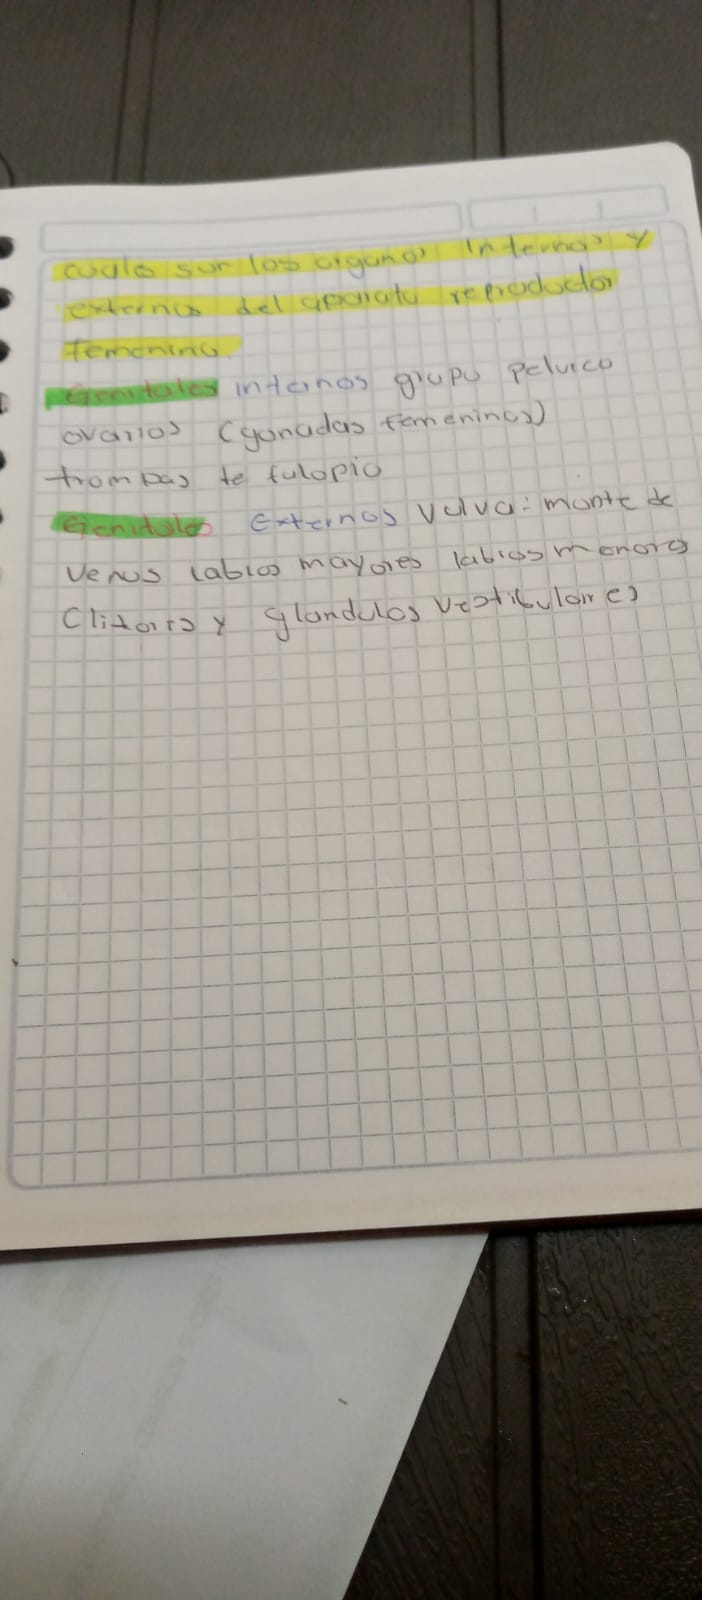 cuales son los organos internos y
externos del aparato reproductor
femenino.
Genitales internos grupo pelvico
ovarios (gonadas femeninas)
trompas de falopio
Genitales Externos Vulva: monte de
Venus labios mayores labios menores
Clitoris y glandulas vestibulares